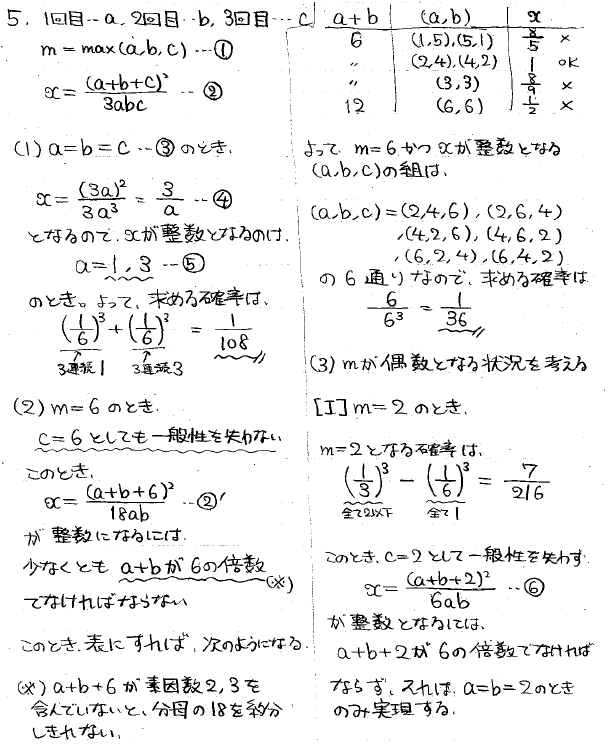 5. 1回目…a, 2回目…b, 3回目…c
m = max(a,b,c) …①
x = (a+b+c)²/3abc …②
(1) a=b=c …③ のとき.
x = (3a)²/3a³ = 3/a …④
となるので、xが整数となるのは.
a = 1, 3 …⑤
のとき。よって、求める確率は、
(1/6)³ + (1/6)³ = 1/108
3連続1 3連続3
(2) m=6 のとき.
c=6 としても一般性を失わない
このとき.
x = (a+b+6)²/18ab …②'
が整数になるには.
少なくとも a+bが6の倍数
(※)
でなければならない
このとき. 表にすれば、次のようになる.
(※) a+b+6 が素因数2,3を
含んでいないと、分母の18を約分
しきれない.
a+b (a,b) x
6 (1,5),(5,1) 8/5 ×
〃 (2,4),(4,2) 1 OK
〃 (3,3) 8/9 ×
12 (6,6) 1/2 ×
よって m=6 かつ xが整数となる
(a,b,c)の組は、
(a,b,c) = (2,4,6), (2,6,4)
,(4,2,6), (4,6,2)
,(6,2,4), (6,4,2)
の 6 通りなので、求める確率は
6/6³ = 1/36
(3) mが偶数となる状況を考える
[I] m=2 のとき.
m=2となる確率は.
(1/3)³ - (1/6)³ = 7/216
全て2以下 全て1
このとき. c=2として一般性を失わず
x = (a+b+2)²/6ab …⑥
が整数となるには.
a+b+2が6の倍数でなければ
ならず、それは. a=b=2のとき
のみ実現する.